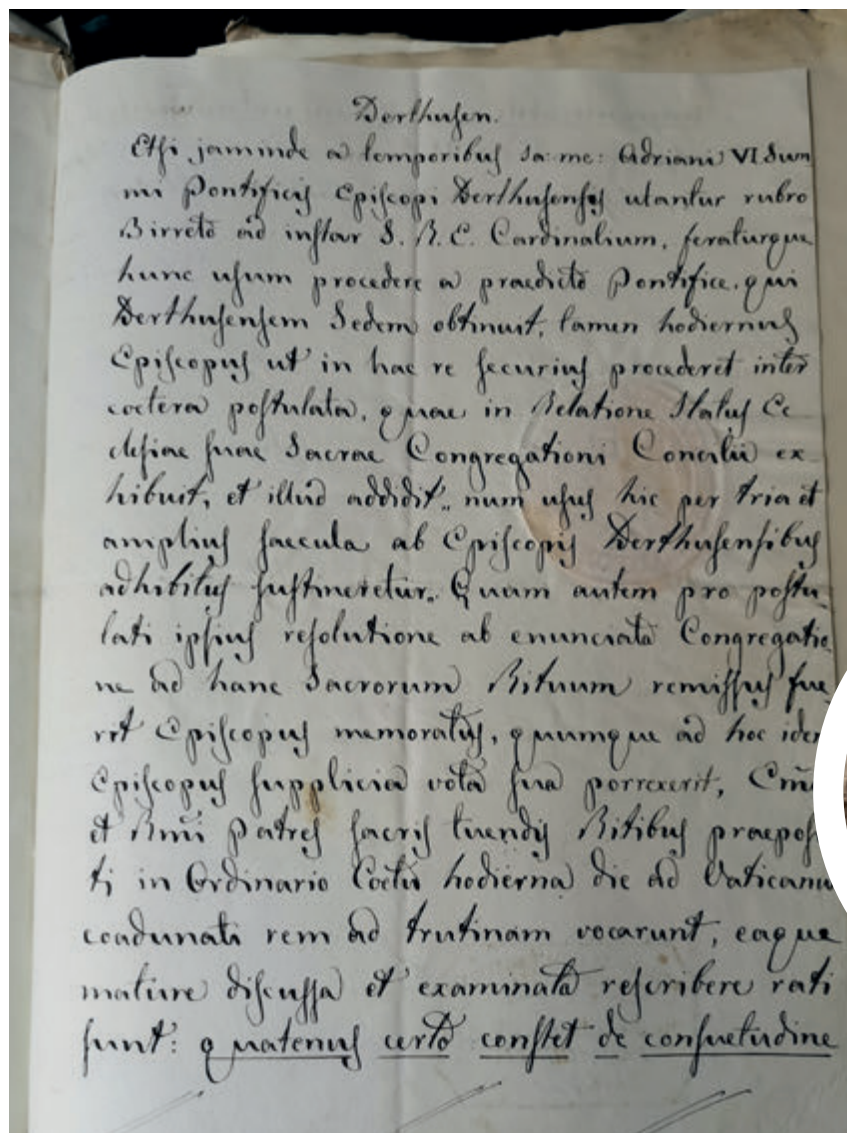 Derthusen.
Etsi jaminde a temporibus sa: me: Adriani VI Sum
mi Pontificis Episcopi Derthusenses utantur rubro
Birreto ad instar S. R. E. Cardinalium, feraturque
hunc usum procedere a praedicto Pontifice, qui
Derthusensem Sedem obtinuit, tamen hodiernus
Episcopus ut in hac re securius procederet inter
coetera postulata, quae in Relatione Status Ec
clesiae suae Sacrae Congregationi Concilii ex
hibuit, et illud addidit „ num usus hic per tria et
amplius saecula ab Episcopis Derthusensibus
adhibitus sustineretur„ Quum autem pro postu
lati ipsius resolutione ab enunciata Congregatio
ne ad hanc Sacrorum Rituum remissus fue
rit Episcopus memoratus, quumque ad hoc idem
Episcopus supplicia vota sua porrexerit, Emi
et Rmi Patres sacris tuendis Ritibus praeposi
ti in Ordinario Coetu hodierna die ad Vaticanum
coadunati rem ad trutinam vocarunt, eaque
mature discussa et examinata rescribere rati
sunt: quatenus certo constet de consuetudine